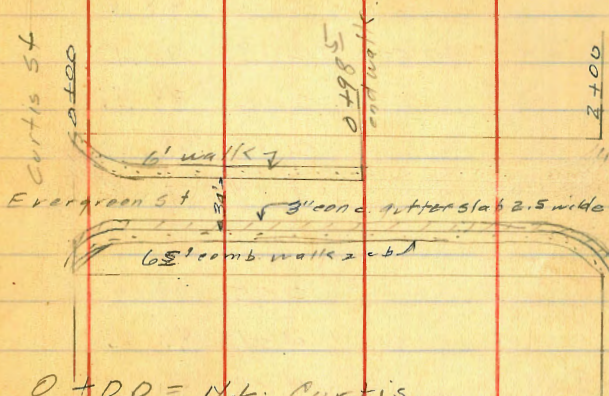 Curtis St
0+00
0+98⁵
end walk
2+00
6' walk
Evergreen St
3" conc. gutter slab 2.5 wide
6⁵' comb walk & cb
0+00 = N.L. Curtis